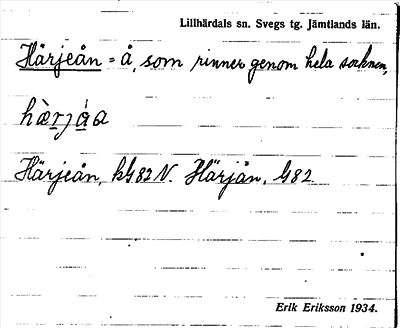 Lillhärdals sn. Svegs tg. Jämtlands län.
Härjeån = å, som rinner genom hela socknen,
hä̀rjáa
Härjeån, kG82 N. Härjån, G82
Erik Eriksson 1934.